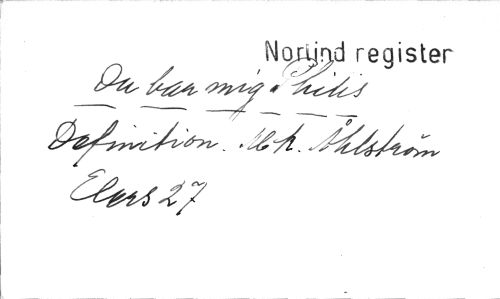 Norlind register
Du bar mig Philis
Definition. Mk. Åhlström
Elers 27